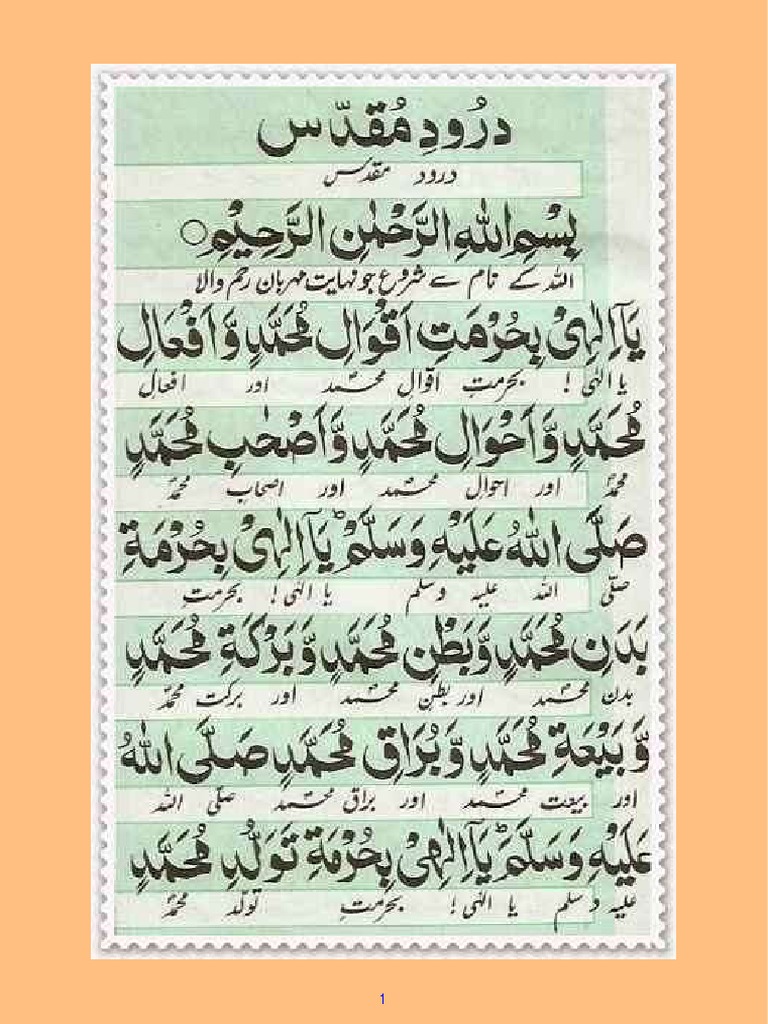 دُرُودِ مُقَدَّس
درود مقدس
بِسْمِ اللهِ الرَّحْمٰنِ الرَّحِيْمِ ○
اللہ کے نام سے شروع جو نہایت مہربان رحم والا
يَآ اِلٰهِيْ بِحُرْمَتِ اَقْوَالِ مُحَمَّدٍ وَّ اَفْعَالِ
یا الٰہی ! بحرمتِ اقوالِ محمد اور افعال
مُحَمَّدٍ وَّ اَحْوَالِ مُحَمَّدٍ وَّ اَصْحٰبِ مُحَمَّدٍ
محمد اور احوال محمد اور اصحاب محمد
صَلَّى اللهُ عَلَيْهِ وَسَلَّمَ ؕ يَآ اِلٰهِيْ بِحُرْمَةِ
صلّی اللہ علیہ وسلم یا الٰہی ! بحرمتِ
بَدَنِ مُحَمَّدٍ وَّ بَطْنِ مُحَمَّدٍ وَّ بَرْكَةِ مُحَمَّدٍ
بدن محمد اور بطن محمد اور برکت محمد
وَّ بَيْعَةِ مُحَمَّدٍ وَّ بُرَاقِ مُحَمَّدٍ صَلَّى اللهُ
اور بیعت محمد اور براق محمد صلّی اللہ
عَلَيْهِ وَسَلَّمَ ؕ يَآ اِلٰهِيْ بِحُرْمَةِ تَوَلُّدِ مُحَمَّدٍ
علیہ وسلم یا الٰہی ! بحرمتِ تولّد محمد
1